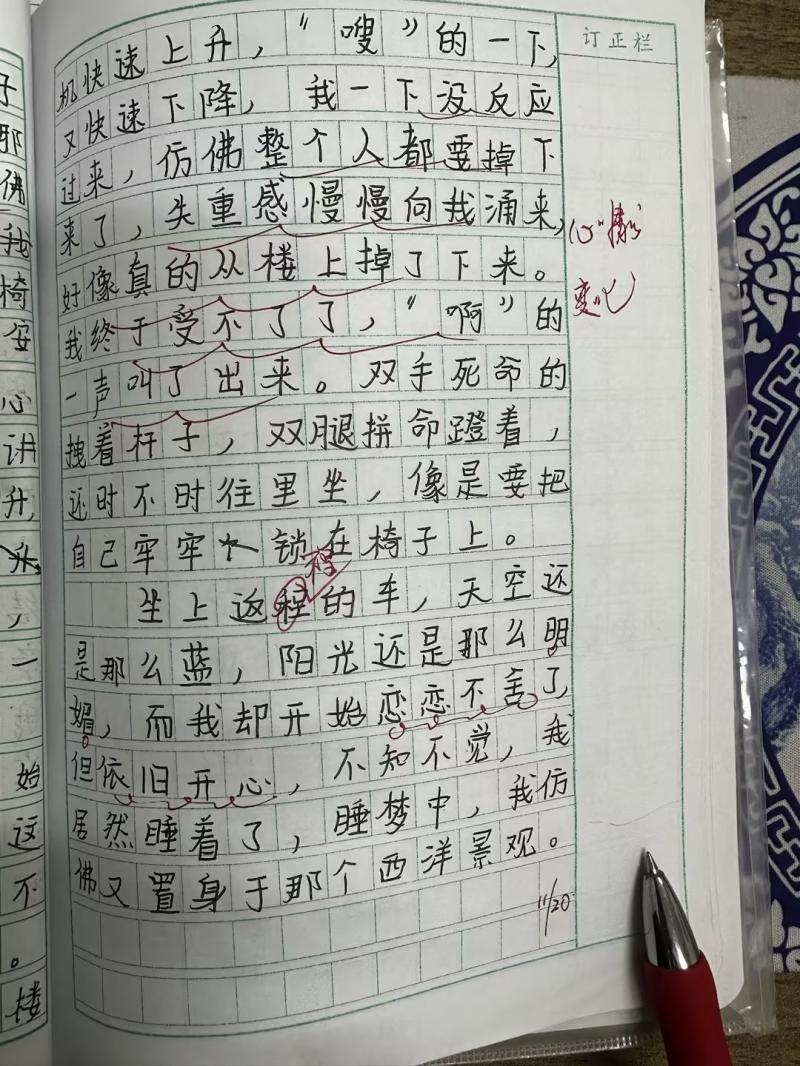 订正栏
机快速上升，“嗖”的一下，
又快速下降，我一下没反应
过来，仿佛整个人都要掉下
来了，失重感慢慢向我涌来，
好像真的从楼上掉了下来。
我终于受不了了，“啊”的
一声叫了出来。双手死命的
拽着杆子，双腿拼命蹬着，
还时不时往里坐，像是要把
自己牢牢锁在椅子上。
坐上返程的车，天空还
是那么蓝，阳光还是那么明
媚，而我却开始恋恋不舍了，
但依旧开心，不知不觉，我
居然睡着了，睡梦中，我仿
佛又置身于那个西洋景观。
11/20
子
那
佛
我
椅
安
心
讲
升，
，
一
始
这
不
。
楼